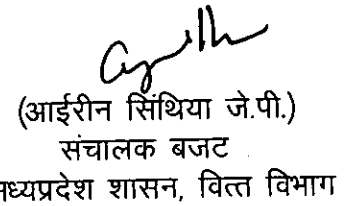 (आईरीन सिंथिया जे.पी.)
संचालक बजट
मध्यप्रदेश शासन, वित्त विभाग